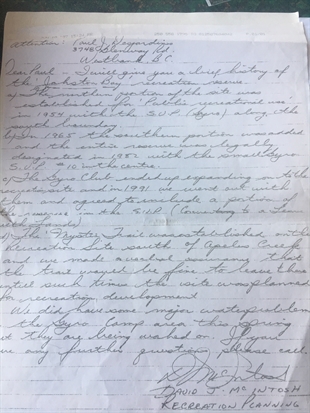 Attention: Paul J. Desjardins
3748 Glenway Rd
Westbank B.C.
Dear Paul - I will give you a brief history
of the recreation reserve.
The northern portion of the site was
established for 'Public recreational use'
in 1954 with the S.U.P. (Gyro) along the
south boundary.
In 1965 the southern portion was added
and the entire reserve was legally
designated in with the small Gyro
S.U.P. # 10 in the centre.
The Gyro Club ended up expanding on to the
site and in 1991 we went out with
them and agreed to include a portion of
the reserve in the S.U.P. (
with Lands)
The Trail was established on the
Recreation Site south of Creek
and we made a verbal that
the trail would be fine to leave there
until such time the site was planned
for recreation development.
We did have some major water problems
the Gyro Camp area this spring
but they are being worked on. If you
have any further questions, please call.
DAVID J. McINTOSH
RECREATION PLANNING